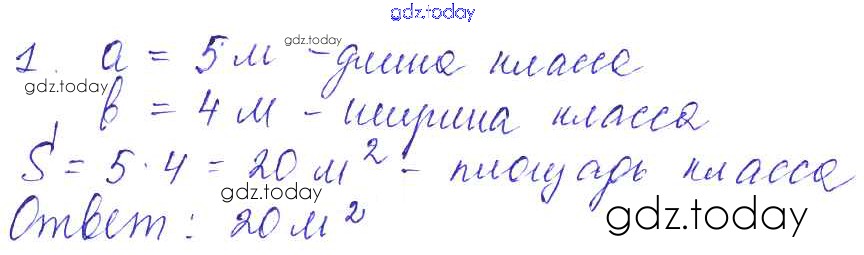 gdz.today
1. a = 5 м - длина класса
gdz.today
gdz.today
b = 4 м - ширина класса
S = 5 · 4 = 20 м² - площадь класса
gdz.today
Ответ: 20 м²
gdz.today